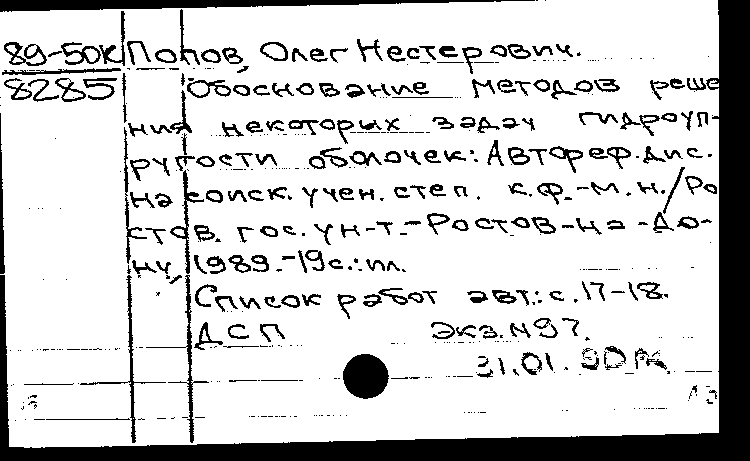 89-50К Попов, Олег Нестерович.
8285 Обоснование методов реше
ния некоторых задач гидроуп-
ругости оболочек: Автореф. дис.
на соиск. учен. степ. к.ф.-м.н./Ро
стов. гос. ун-т.-Ростов-на-До-
ну, 1989.-19с.:ил.
Список работ авт.: с.17-18.
ДСП Экз.N97.
31.01.90